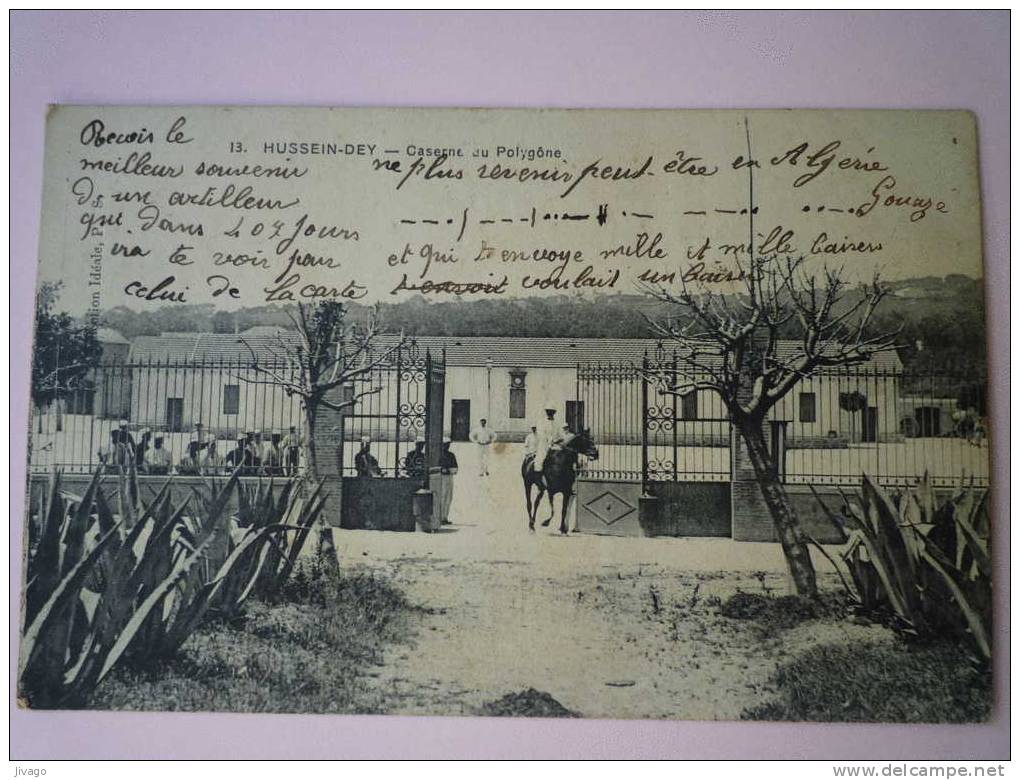 13. HUSSEIN-DEY — Caserne du Polygône
Recois le
meilleur souvenir
d'un artilleur
qui dans 407 Jours
ira te voir pour
celui de la carte
ne plus revenir peut-être en Algérie
et qui t'envoye mille et mille baisers
voulait un baiser
Idéale, P. S.
jivago
www.delcampe.net